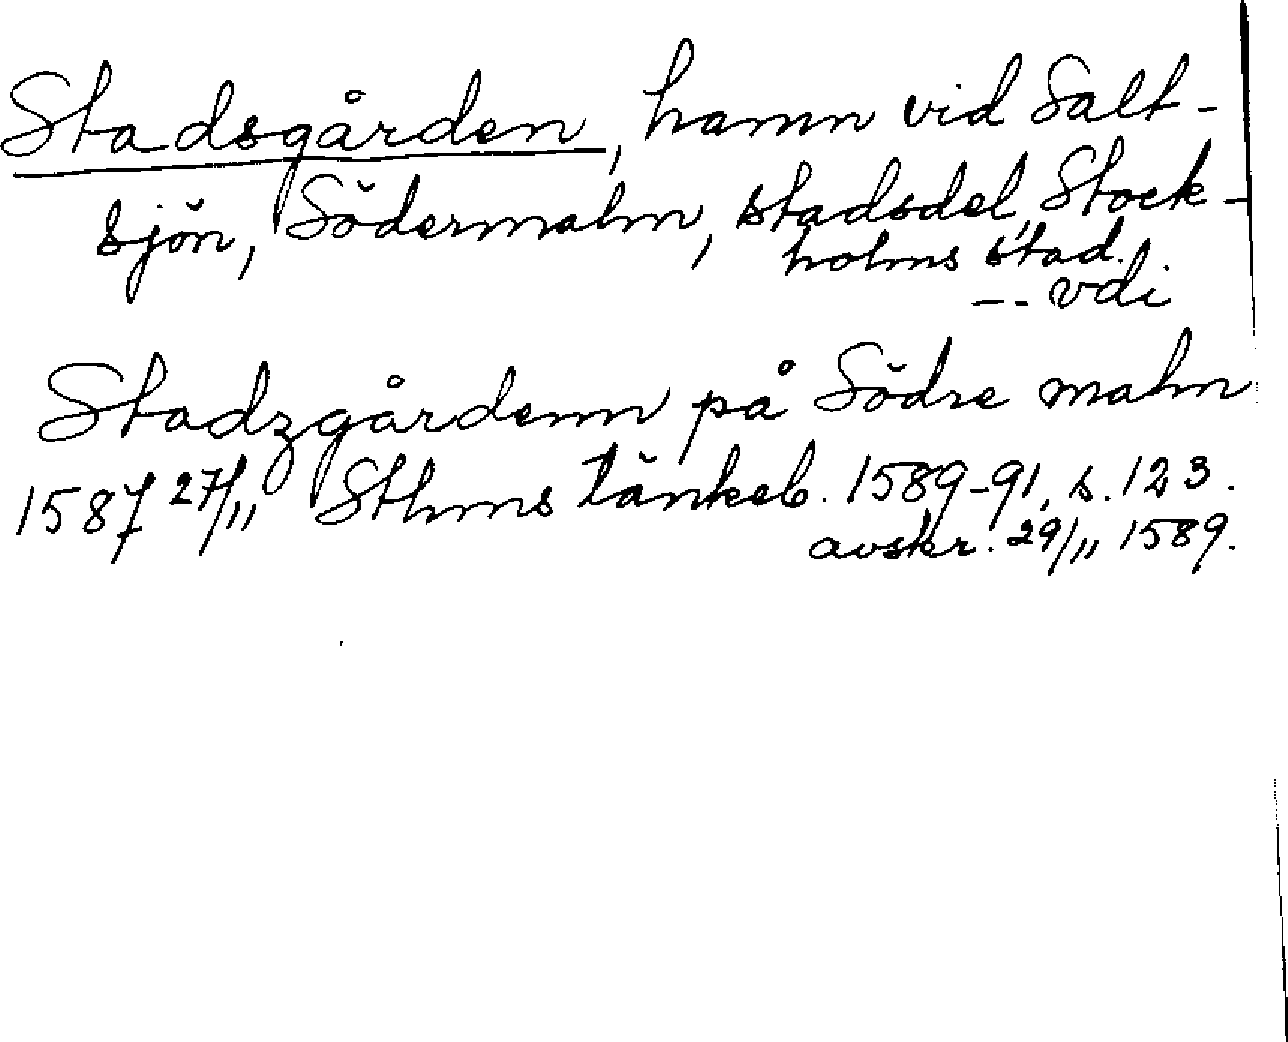 Stadsgården, hamn vid Salt-
sjön, Södermalm, stadsdel, Stock-
holms stad.
-- vdi
Stadzgårdenn på Södre malm
1587 27/11 Sthms tänkeb. 1589-91, s. 123.
avskr. 29/11 1589.